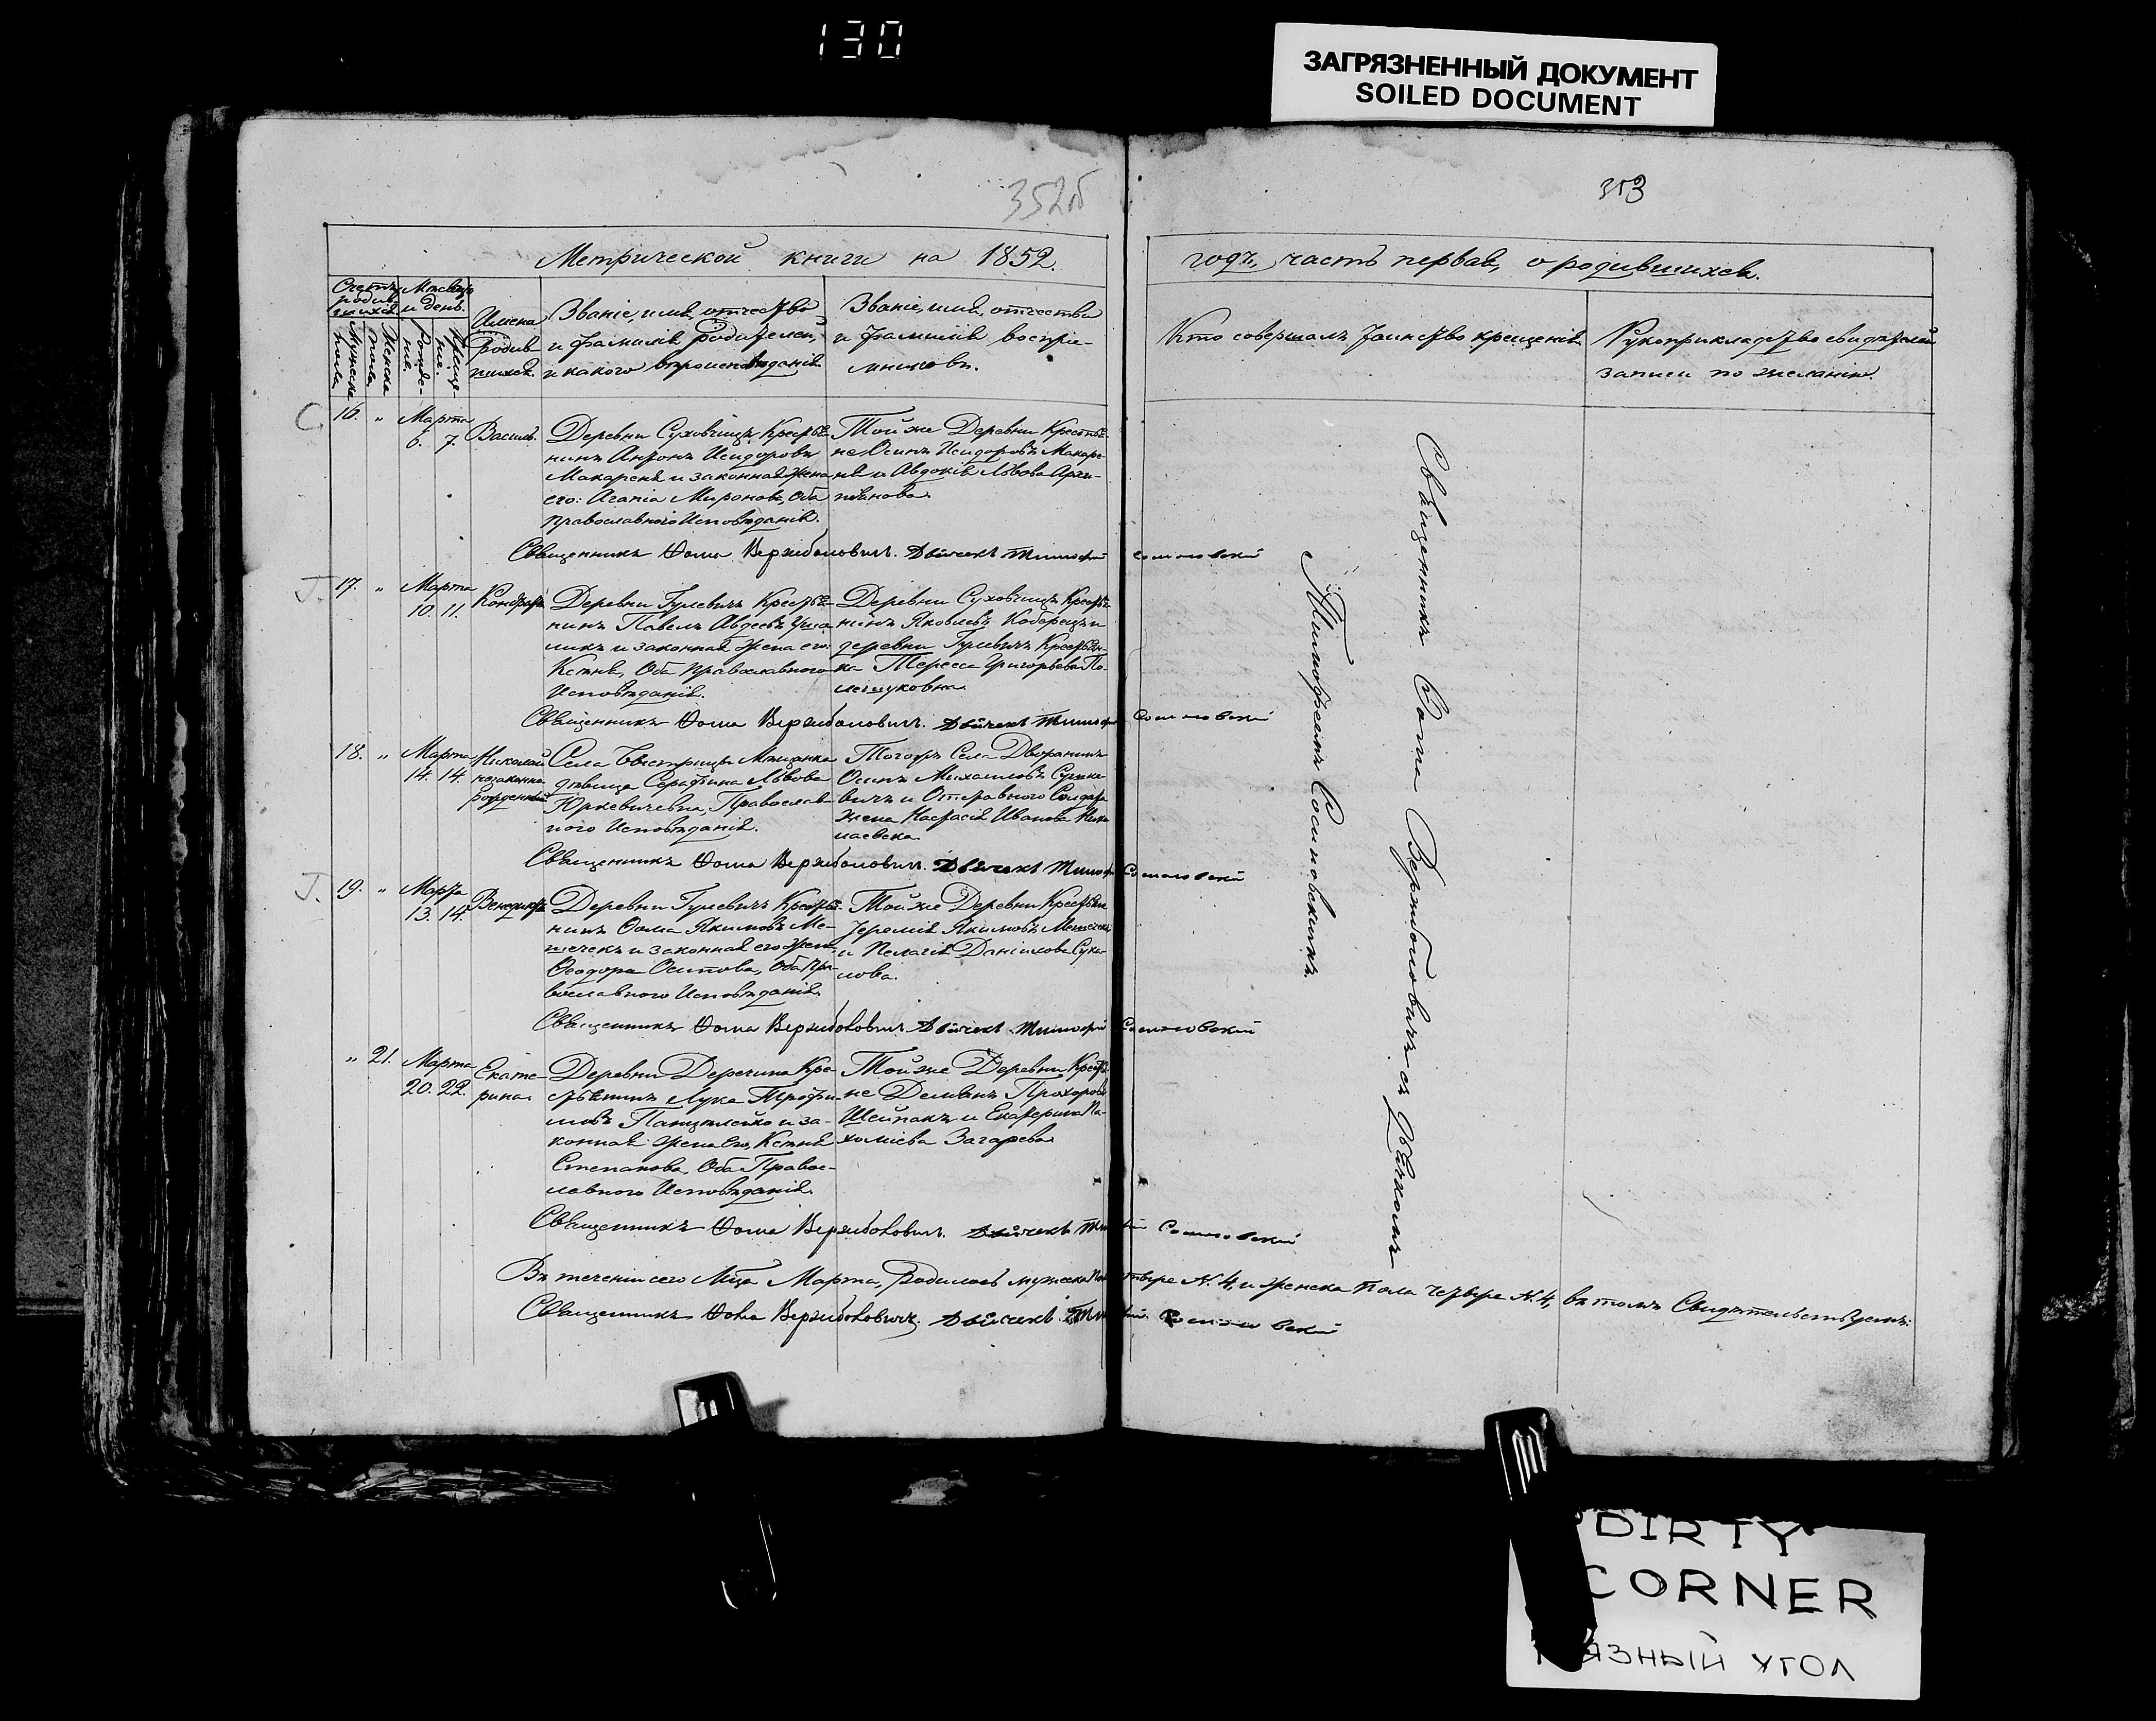 130
ЗАГРЯЗНЕННЫЙ ДОКУМЕНТ
SOILED DOCUMENT
352об
353
Метрической книги на 1852.
годъ, часть первая, о родившихся.
Счетъ родившихся.
Мужеска пола
Женска пола
Мѣсяцъ и день.
Рожденіе.
Крещеніе.
Имена
родив-
шихся.
Званіе, имя, отчество
и фамилія Родителей,
и какого вѣроисповѣданія.
Званіе, имя, отчество
и фамилія воспрі-
емниковъ.
Кто совершалъ таинство крещенія.
Рукоприкладство свидѣтелей
записи по желанію.
16. „ Марта
6. 7. Василій.
Деревни Суховчицъ Крестья-
нинъ Антонъ Исидоровъ
Макареня и законная жена
его: Агапія Миронова, Оба
православнаго Исповѣданія.
Той же Деревни Крестья-
не Осипъ Исидоровъ Макаре-
ня и Авдокія Львова
Священникъ Ѳома Вержболовичъ. Дьячекъ Тимофей Сосновскій
17. „ Марта
10. 11. Кондратъ
Деревни Гулевичъ Крестья-
нинъ Павелъ Авдеевъ
и законная жена его:
Ксенія, Оба православнаго
Исповѣданія.
Деревни Суховчицъ Крестья-
нинъ Яковлевъ Кобринецъ и
деревни Гулевичъ Крестьян-
ка Тересса Григорьева По-
лещуковна.
Священникъ Ѳома Вержболовичъ. Дьячекъ Тимофей Сосновскій
18. „ Марта
14. 14. Николай
незаконно
рожденный
Села Быстрицы Мѣщанка
дѣвица Серафина Львова
Юркевичевна, Православ-
ного Исповѣданія.
Тогожъ Села Дворянинъ
Осипъ Михайловъ
и Отставного Солдата
жена Настасія Иванова
Священникъ Ѳома Вержболовичъ. Дьячекъ Тимофей Сосновскій
19. „ Марта
13. 14. Венедиктъ
Деревни Гулевичъ Крестья-
нинъ Ѳома Якимовъ Ме-
шечекъ и законная его жена
Ѳеодора Осипова, Оба Пра-
вославного Исповѣданія.
Той же Деревни Крестьяне
Іеремія Якимовъ Мешечекъ
и Пелагія Даніилова
Священникъ Ѳома Вержболовичъ. Дьячекъ Тимофей Сосновскій
„ 21. Марта
20. 22. Екате-
рина.
Деревни Деречина Кре-
стьянинъ Лука Трофи-
мовъ и за-
конная жена Его, Ксенія
Степанова, Оба Правос-
лавного Исповѣданія.
Той же Деревни Крестья-
не Демьянъ Прохоровъ
Шейпакъ и Екатерина Па-
хоміева Загарева
Священникъ Ѳома Вержболовичъ. Дьячекъ Тимофей Сосновскій
Въ теченіи сего Мца Марта, Родилось мужеска пола четыре N. 4, и женска пола четыре N. 4, въ томъ Свидѣтельствуемъ:
Священникъ Ѳома Вержболовичъ. Дьячекъ Тимофей Сосновскій
Священникъ Ѳома Вержболовичъ съ Дьячкомъ
Тимофеемъ Сосновскимъ.
DIRTY
CORNER
ЯЗНЫЙ УГОЛ